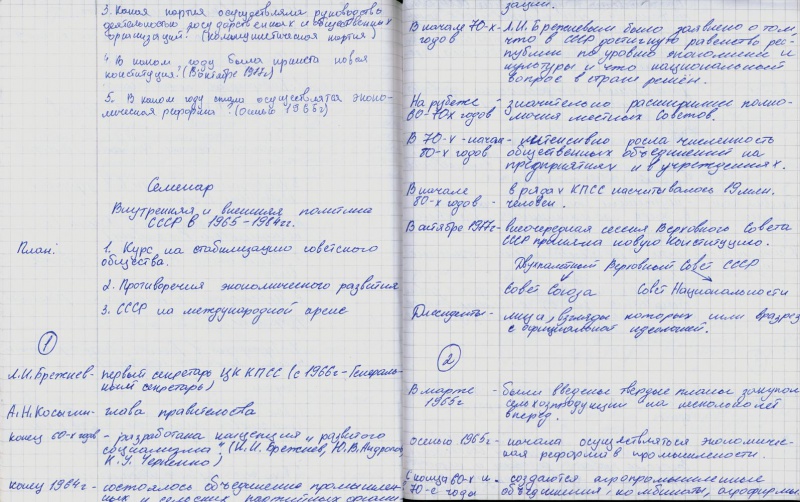 3. Какая партия осуществляла руководство
деятельностью государственных и общественных
организаций? (коммунистическая партия)
4 В каком году была принята новая
конституция? (В октябре 1977г)
5. В каком году стала осуществлятся эконо-
мическая реформа? (осенью 1965г)
Семенар
Внутренняя и внешняя политика
СССР в 1965-1984гг.
План:
1. Курс на стабилизацию советского
общества.
2. Противоречия экономического развития
3. СССР на международной арене
1
Л.И.Брежнев - первый секретарь ЦК КПСС (с 1966г - Генераль-
ный секретарь)
А.Н.Косыгин - глава правительства
конец 60-х годов - разработана концепция "развитого
социализма" (Л.И.Брежнев, Ю.В.Андропов,
К.У.Черненко)
конец 1964г - состоялось объединение промышлен-
ных и сельских партийных органи
зации.
В начале 70-х годов - Л.И.Брежневым было заявлено о том,
что в СССР достигнуто равенство рес-
публик по уровню экономики и
культуры и что национальный
вопрос в стране решён.
На рубеже 60-70х годов - значительно расширение полно-
мочия местных Советов.
В 70-х - начале 80-х годов - интенсивно росла численность
общественных объединений на
предприятиях и в учреждениях.
В начале 80-х годов - в рядах КПСС насчитывалось 19 млн.
человек.
В октябре 1977г - внеочередная сессия Верховного Совета
СССР приняла новую Конституцию.
Двухпалатный Верховный Совет СССР
Совет Союза Совет Национальности
Диссиденты - лица, взгляды которых шли вразрез
с официальной идеологией.
2
В марте 1965г - были введены твердые планы закупок
сельхозпродукции на несколько лет
вперед.
осенью 1965г - начала осуществляться экономичес-
кая реформа в промышленности.
С конца 60-х и 70-е годы - создаются агропромышленные
объединения, комбинаты, агрофирмы